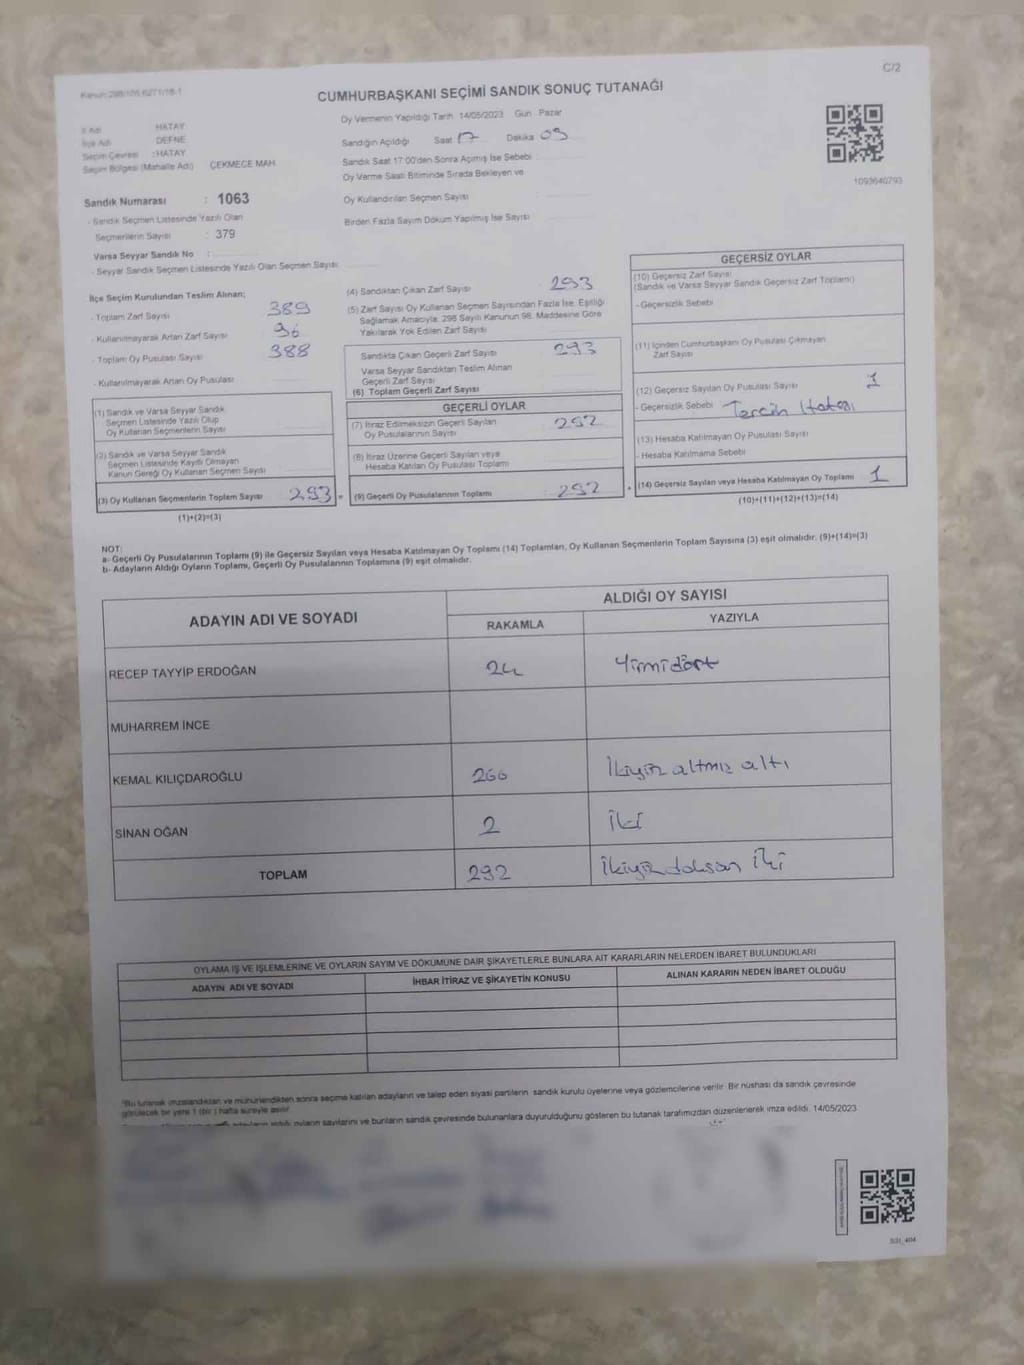 C/2
Kanun:298/105 6271/18-1
CUMHURBAŞKANI SEÇİMİ SANDIK SONUÇ TUTANAĞI
Oy Vermenin Yapıldığı Tarih 14/05/2023 Gün Pazar
İl Adı HATAY
İlçe Adı DEFNE
Seçim Çevresi : HATAY
Seçim Bölgesi (Mahalle Adı) ÇEKMECE MAH.
Sandık Numarası : 1063
- Sandık Seçmen Listesinde Yazılı Olan
Seçmenlerin Sayısı : 379
Varsa Seyyar Sandık No :
- Seyyar Sandık Seçmen Listesinde Yazılı Olan Seçmen Sayısı
Sandığın Açıldığı Saat 17 Dakika 09
Sandık Saat 17:00'den Sonra Açımış İse Sebebi
Oy Verme Saati Bitiminde Sırada Bekleyen ve
Oy Kullandırılan Seçmen Sayısı
Birden Fazla Sayım Döküm Yapılmış İse Sayısı
1093640793
İlçe Seçim Kurulundan Teslim Alınan;
- Toplam Zarf Sayısı 389
- Kullanılmayarak Artan Zarf Sayısı 96
- Toplam Oy Pusulası Sayısı 388
- Kullanılmayarak Artan Oy Pusulası
(1) Sandık ve Varsa Seyyar Sandık
Seçmen Listesinde Yazılı Olup
Oy Kullanan Seçmenlerin Sayısı
(2) Sandık ve Varsa Seyyar Sandık
Seçmen Listesinde Kayıtlı Olmayan
Kanun Gereği Oy Kullanan Seçmen Sayısı
(3) Oy Kullanan Seçmenlerin Toplam Sayısı 293 =
(1)+(2)=(3)
(4) Sandıktan Çıkan Zarf Sayısı 293
(5) Zarf Sayısı Oy Kullanan Seçmen Sayısından Fazla İse, Eşitliği
Sağlamak Amacıyla, 298 Sayılı Kanunun 98. Maddesine Göre
Yakılarak Yok Edilen Zarf Sayısı
Sandıkta Çıkan Geçerli Zarf Sayısı 293
Varsa Seyyar Sandıktan Teslim Alınan
Geçerli Zarf Sayısı
(6) Toplam Geçerli Zarf Sayısı
GEÇERLİ OYLAR
(7) İtiraz Edilmeksizin Geçerli Sayılan
Oy Pusulalarının Sayısı 292
(8) İtiraz Üzerine Geçerli Sayılan veya
Hesaba Katılan Oy Pusulası Toplamı
(9) Geçerli Oy Pusulalarının Toplamı 292 +
GEÇERSİZ OYLAR
(10) Geçersiz Zarf Sayısı
(Sandık ve Varsa Seyyar Sandık Geçersiz Zarf Toplamı)
- Geçersizlik Sebebi
(11) İçinden Cumhurbaşkanı Oy Pusulası Çıkmayan
Zarf Sayısı
(12) Geçersiz Sayılan Oy Pusulası Sayısı 1
- Geçersizlik Sebebi Tercih Hatası
(13) Hesaba Katılmayan Oy Pusulası Sayısı
- Hesaba Katılmama Sebebi
(14) Geçersiz Sayılan veya Hesaba Katılmayan Oy Toplamı 1
(10)+(11)+(12)+(13)=(14)
NOT:
a- Geçerli Oy Pusulalarının Toplamı (9) ile Geçersiz Sayılan veya Hesaba Katılmayan Oy Toplamı (14) Toplamları, Oy Kullanan Seçmenlerin Toplam Sayısına (3) eşit olmalıdır. (9)+(14)=(3)
b- Adayların Aldığı Oyların Toplamı, Geçerli Oy Pusulalarının Toplamına (9) eşit olmalıdır.
ADAYIN ADI VE SOYADI
ALDIĞI OY SAYISI
RAKAMLA YAZIYLA
RECEP TAYYİP ERDOĞAN 24 Yirmidört
MUHARREM İNCE
KEMAL KILIÇDAROĞLU 266 İkiyüz altmış altı
SİNAN OĞAN 2 İki
TOPLAM 292 İkiyüz doksan iki
OYLAMA İŞ VE İŞLEMLERİNE VE OYLARIN SAYIM VE DÖKÜMÜNE DAİR ŞİKAYETLERLE BUNLARA AİT KARARLARIN NELERDEN İBARET BULUNDUKLARI
ADAYIN ADI VE SOYADI İHBAR İTİRAZ VE ŞİKAYETİN KONUSU ALINAN KARARIN NEDEN İBARET OLDUĞU
*Bu tutanak imzalandıktan ve mühürlendikten sonra seçime katılan adayların ve talep eden siyasi partilerin sandık kurulu üyelerine veya gözlemcilerine verilir. Bir nüshası da sandık çevresinde
görülecek bir yere 1 (bir) hafta süreyle asılır.
adayların aldığı oyların sayılarını ve bunların sandık çevresinde bulunanlara duyurulduğunu gösteren bu tutanak tarafımızdan düzenlenerek imza edildi. 14/05/2023